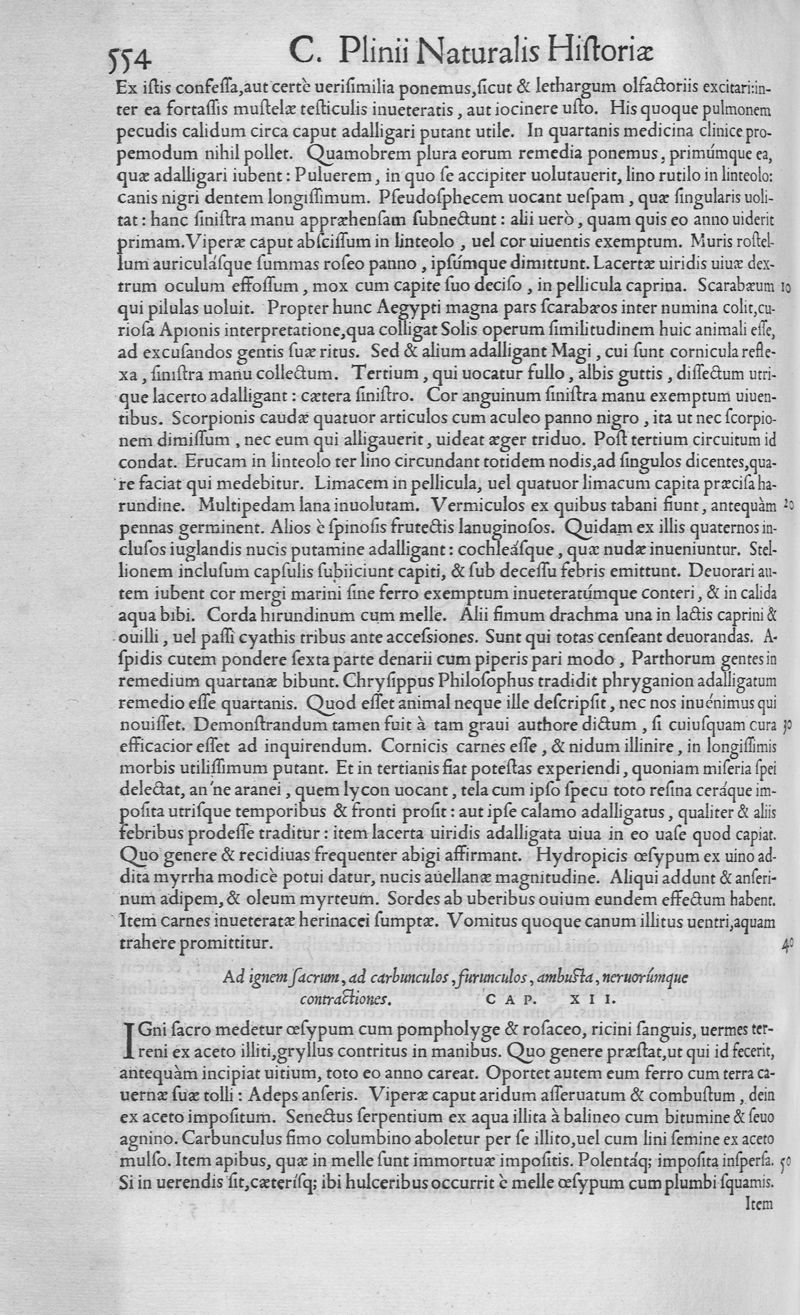 554 C. Plinii Naturalis Hiſtoriæ
Ex iſtis confeſſa,aut certè ueriſimilia ponemus,ſicut & lethargum olfactoriis excitari:in-
ter ea fortaſſis muſtelæ teſticulis inueteratis, aut iocinere uſto. His quoque pulmonem
pecudis calidum circa caput adalligari putant utile. In quartanis medicina clinice pro-
pemodum nihil pollet. Quamobrem plura eorum remedia ponemus, primúmque ea,
quæ adalligari iubent: Puluerem, in quo ſe accipiter uolutauerit, lino rutilo in linteolo:
canis nigri dentem longiſſimum. Pſeudoſphecem uocant ueſpam, quæ ſingularis uoli-
tat: hanc ſiniſtra manu appræhenſam ſubnectunt: alii uerò, quam quis eo anno uiderit
primam. Viperæ caput abſciſſum in linteolo, uel cor uiuentis exemptum. Muris roſtel-
lum auriculáſque ſummas roſeo panno, ipſúmque dimittunt. Lacertæ uiridis uiuæ dex-
trum oculum effoſſum, mox cum capite ſuo deciſo, in pellicula caprina. Scarabæum 10
qui pilulas uoluit. Propter hunc Aegypti magna pars ſcarabæos inter numina colit,cu-
rioſa Apionis interpretatione,qua colligat Solis operum ſimilitudinem huic animali eſſe,
ad excuſandos gentis ſuæ ritus. Sed & alium adalligant Magi, cui ſunt cornicula refle-
xa, ſiniſtra manu collectum. Tertium, qui uocatur fullo, albis guttis, diſſectum utri-
que lacerto adalligant: cætera ſiniſtro. Cor anguinum ſiniſtra manu exemptum uiuen-
tibus. Scorpionis caudæ quatuor articulos cum aculeo panno nigro, ita ut nec ſcorpio-
nem dimiſſum, nec eum qui alligauerit, uideat æger triduo. Poſt tertium circuitum id
condat. Erucam in linteolo ter lino circundant totidem nodis,ad ſingulos dicentes,qua-
re faciat qui medebitur. Limacem in pellicula, uel quatuor limacum capita præciſa ha-
rundine. Multipedam lana inuolutam. Vermiculos ex quibus tabani fiunt, antequàm 20
pennas germinent. Alios è ſpinoſis frutectis lanuginoſos. Quidam ex illis quaternos in-
cluſos iuglandis nucis putamine adalligant: cochleáſque, quæ nudæ inueniuntur. Stel-
lionem incluſum capſulis ſubiiciunt capiti, & ſub deceſſu febris emittunt. Deuorari au-
tem iubent cor mergi marini ſine ferro exemptum inueteratúmque conteri, & in calida
aqua bibi. Corda hirundinum cum melle. Alii fimum drachma una in lactis caprini &
ouilli, uel paſſi cyathis tribus ante acceſsiones. Sunt qui totas cenſeant deuorandas. A-
ſpidis cutem pondere ſexta parte denarii cum piperis pari modo, Parthorum gentes in
remedium quartanæ bibunt. Chryſippus Philoſophus tradidit phryganion adalligatum
remedio eſſe quartanis. Quod eſſet animal neque ille deſcripſit, nec nos inuénimus qui
nouiſſet. Demonſtrandum tamen fuit à tam graui authore dictum, ſi cuiuſquam cura 30
efficacior eſſet ad inquirendum. Cornicis carnes eſſe, & nidum illinire, in longiſſimis
morbis utiliſſimum putant. Et in tertianis fiat poteſtas experiendi, quoniam miſeria ſpei
delectat, an'ne aranei, quem lycon uocant, tela cum ipſo ſpecu toto reſina ceráque im-
poſita utriſque temporibus & fronti proſit: aut ipſe calamo adalligatus, qualiter & aliis
febribus prodeſſe traditur: item lacerta uiridis adalligata uiua in eo uaſe quod capiat.
Quo genere & recidiuas frequenter abigi affirmant. Hydropicis œſypum ex uino ad-
dita myrrha modicè potui datur, nucis auellanæ magnitudine. Aliqui addunt & anſeri-
num adipem, & oleum myrteum. Sordes ab uberibus ouium eundem effectum habent.
Item carnes inueteratæ herinacei ſumptæ. Vomitus quoque canum illitus uentri,aquam
trahere promittitur. 40
Ad ignem ſacrum, ad carbunculos, furunculos, ambuſta, neruorúmque
contractiones. CAP. XII.
IGni ſacro medetur œſypum cum pompholyge & roſaceo, ricini ſanguis, uermes ter-
reni ex aceto illiti,gryllus contritus in manibus. Quo genere præſtat,ut qui id fecerit,
antequàm incipiat uitium, toto eo anno careat. Oportet autem eum ferro cum terra ca-
uernæ ſuæ tolli: Adeps anſeris. Viperæ caput aridum aſſeruatum & combuſtum, dein
ex aceto impoſitum. Senectus ſerpentium ex aqua illita à balineo cum bitumine & ſeuo
agnino. Carbunculus fimo columbino aboletur per ſe illito,uel cum lini ſemine ex aceto
mulſo. Item apibus, quæ in melle ſunt immortuæ impoſitis. Polentáq; impoſita inſperſa. 50
Si in uerendis ſit,cæteríſq; ibi hulceribus occurrit è melle œſypum cum plumbi ſquamis.
Item